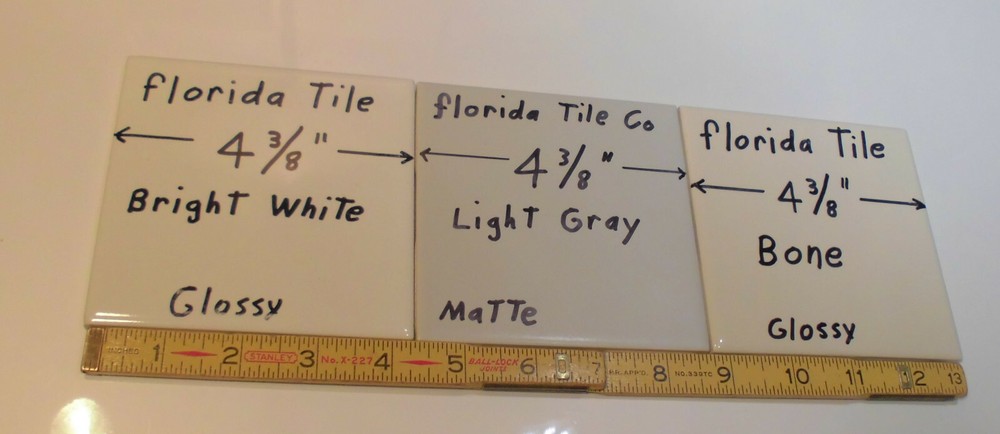 florida Tile
4 3/8"
Bright White
Glossy
florida Tile Co
4 3/8"
Light Gray
MaTTe
florida Tile
4 3/8"
Bone
Glossy
INCHES 1 2 STANLEY 3 No. X-227 4 5 BALL-LOCK JOINTS 6 7 8 9 10 11 12 13